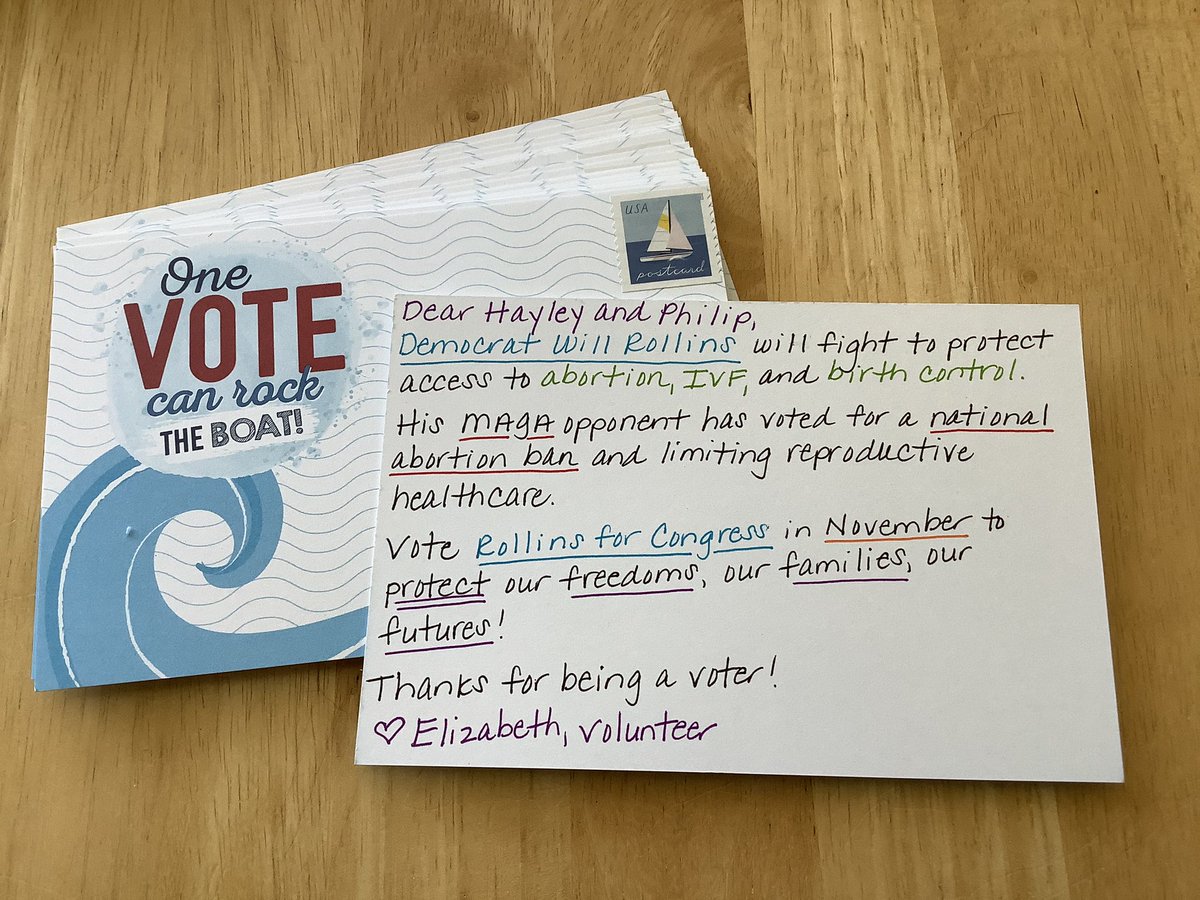 One
VOTE
can rock
THE BOAT!
USA
postcard
Dear Hayley and Philip,
Democrat Will Rollins will fight to protect
access to abortion, IVF, and birth control.
His MAGA opponent has voted for a national
abortion ban and limiting reproductive
healthcare.
Vote Rollins for Congress in November to
protect our freedoms, our families, our
futures!
Thanks for being a voter!
♡ Elizabeth, volunteer